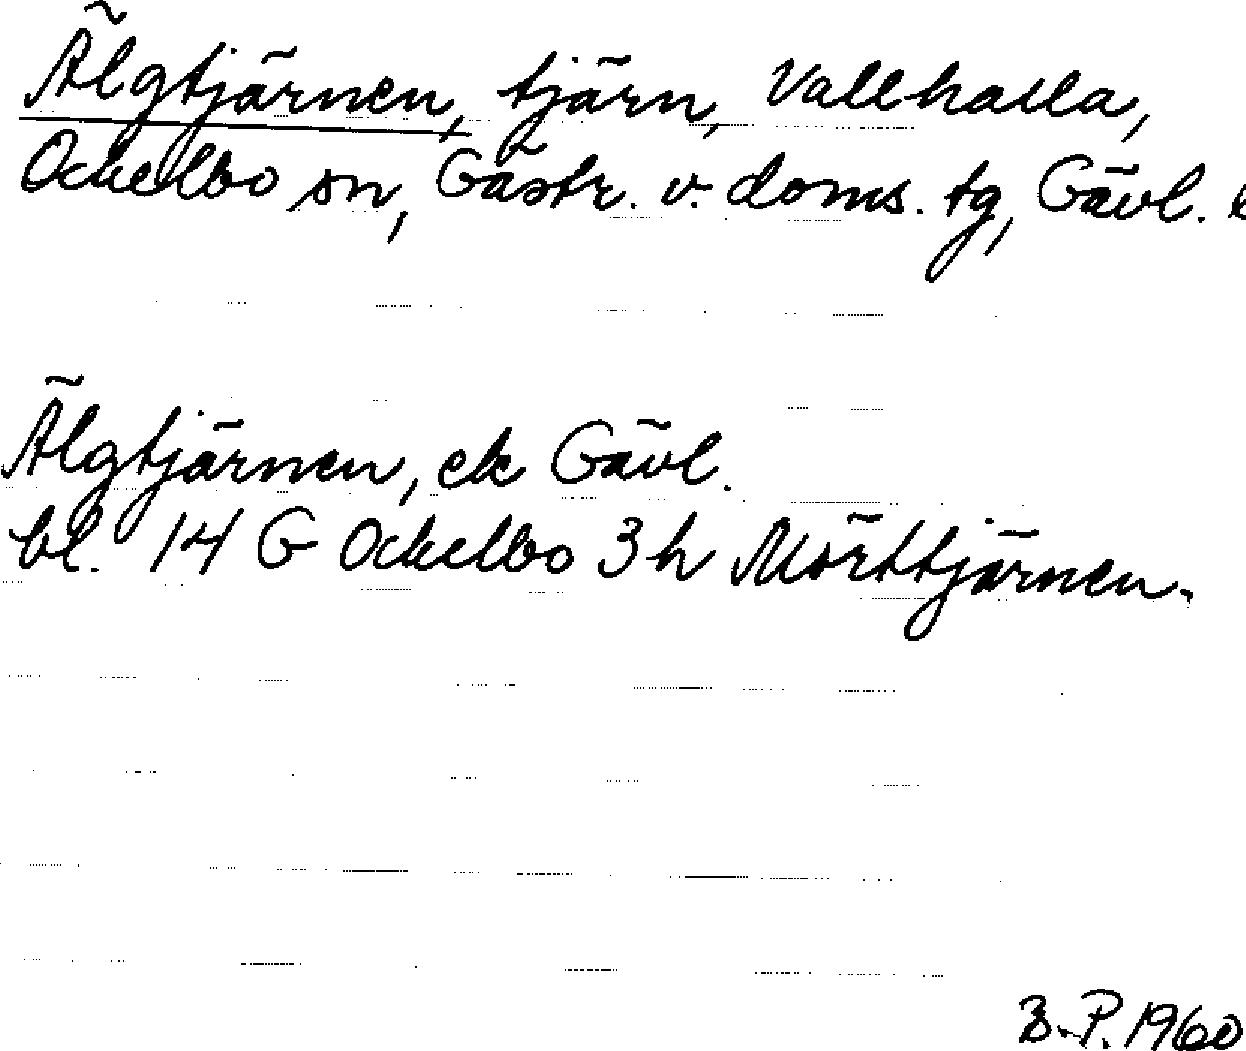 Älgtjärnen, tjärn, Vallhalla,
Ockelbo sn, Gästr. v. doms. tg, Gävl.
Älgtjärnen, ek Gävl.
bl. 14 G Ockelbo 3h Mörttjärnen.
B.P. 1960